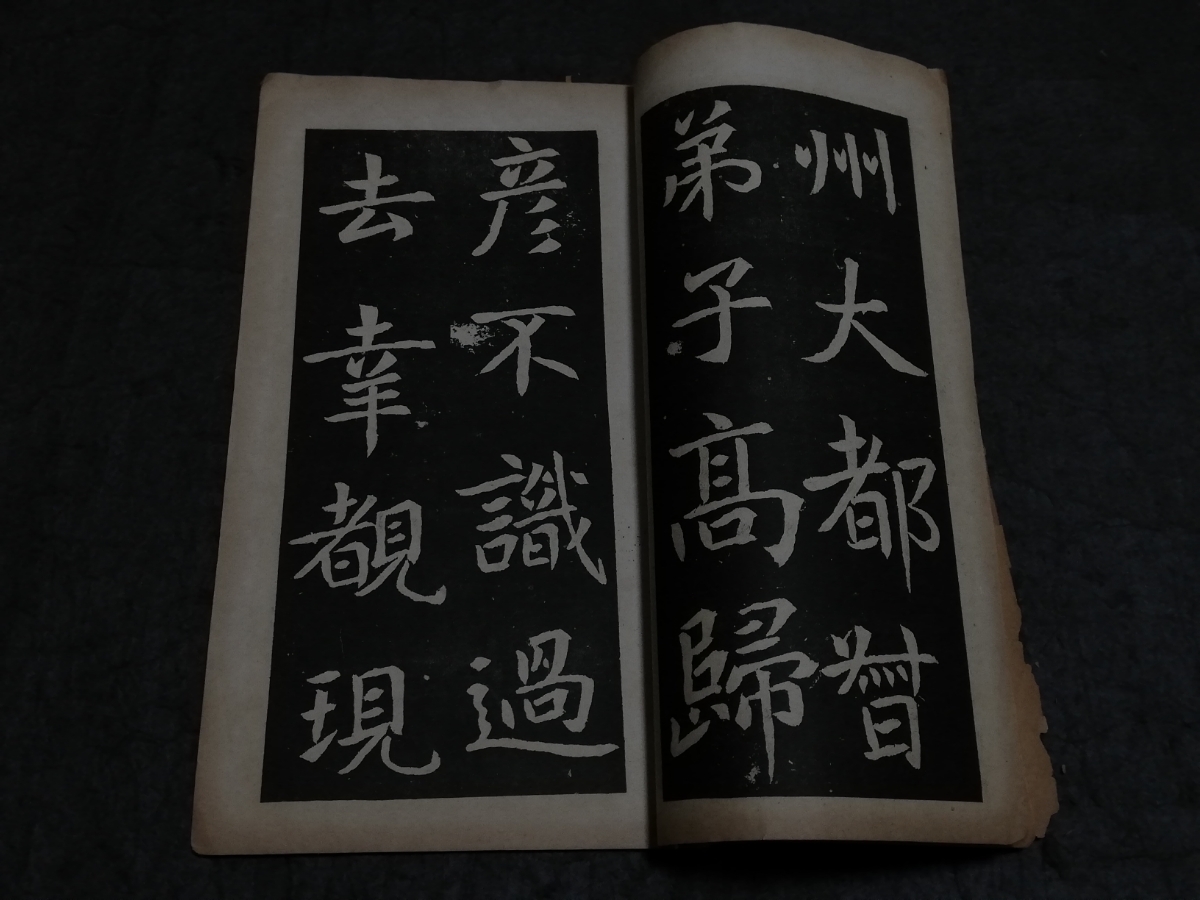 州大都督
弟子髙歸
彦不識過
去幸覩現